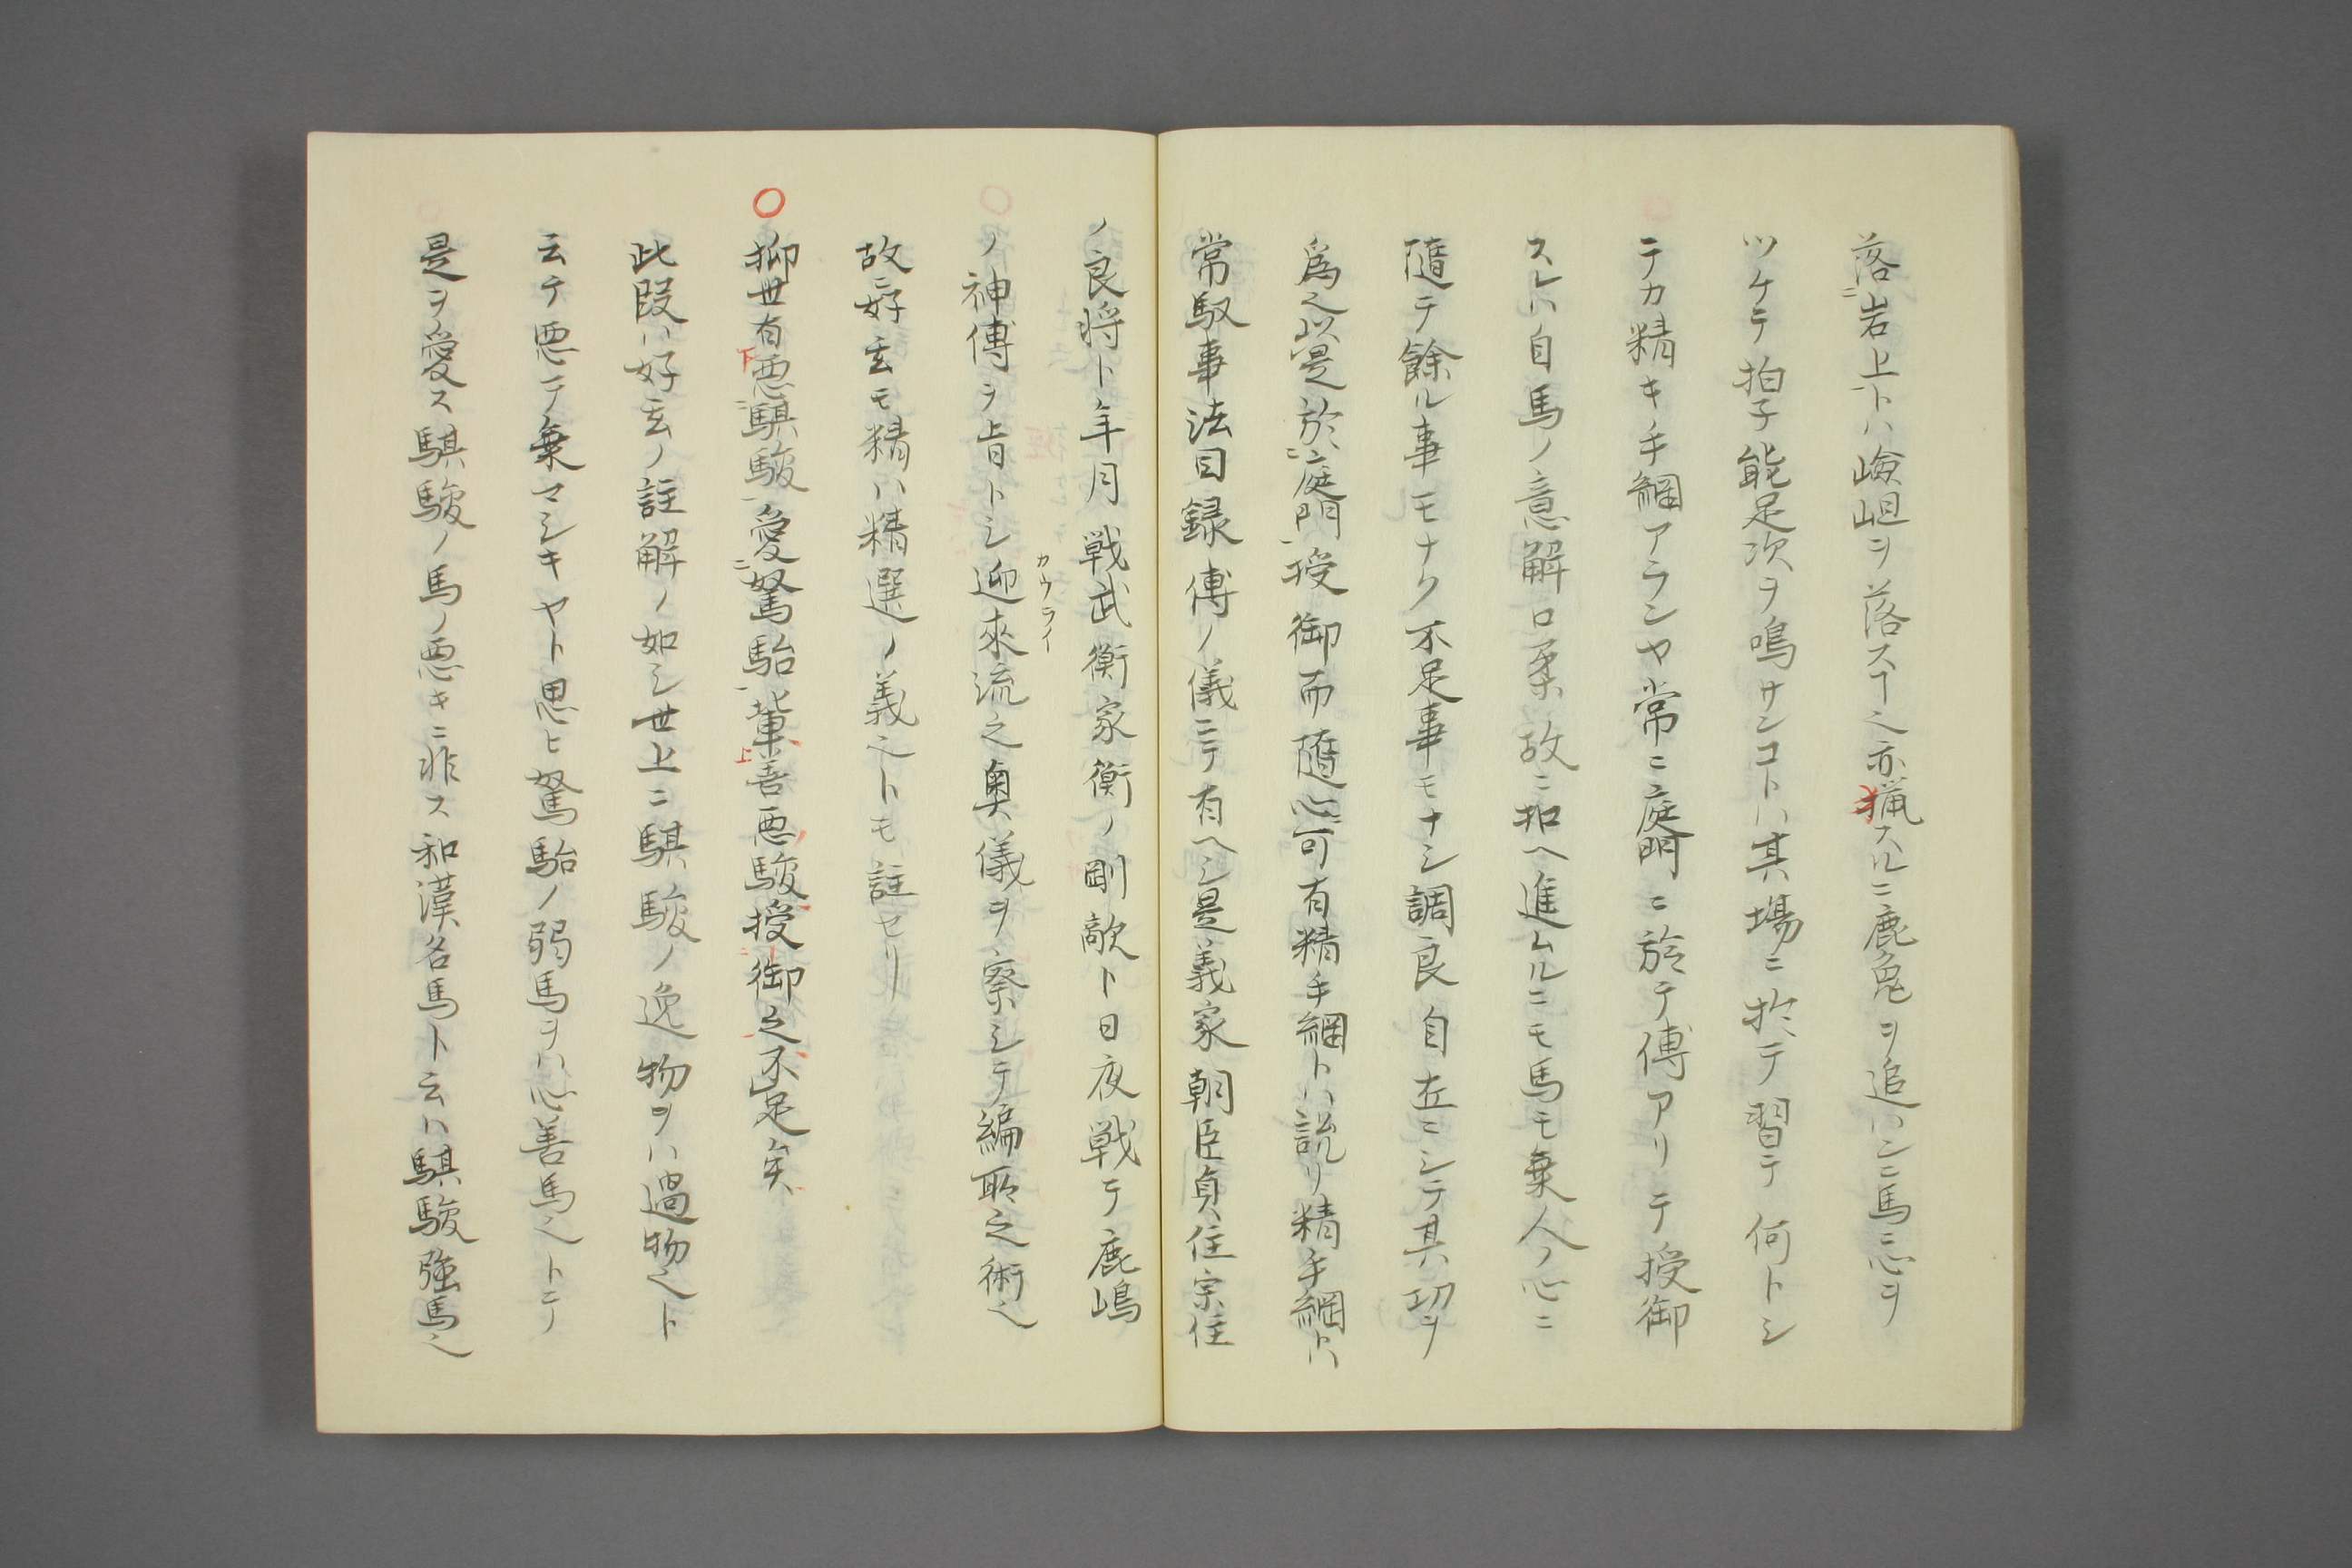 落岩上トハ嶮岨ヲ落スヿ也亦猟スルニ鹿兔ヲ追ハンニ馬ニ心ヲ
ツケテ拍子能足次ヲ鳴サンコトハ其場ニ於テ習テ何トシ
テカ精キ手綱アランヤ常ニ庭門ニ於テ傳アリテ授御
スレハ自馬ノ意解口柔故ニ扣ヘ進ムルニモ馬モ乗人ノ心ニ
隨テ餘ル事モナク不足事モナシ調良自在ニシテ其功ヲ
爲也以是於庭門授御而隨心可有精手綱トハ説リ精手綱トハ
常馭事法目録傳ノ儀ニテ有ヘシ是義家朝臣貞任宗任
ノ良将ト年月戦武衡家衡ノ剛敵ト日夜戦テ鹿嶋
ノ神傳ヲ旨トシ迎來流之奥儀ヲ察シテ編耴之術也
カウライ
故ニ好玄モ精ハ精選ノ義也トモ註セリ
○抑世有悪騏駿愛駑駘輩善悪駿授御之不足矣
下
上
此段ハ好玄ノ註解ノ如シ世上ニ騏駿ノ逸物ヲハ過物也ト
云テ悪テ乗マシキヤト思ヒ駑駘ノ弱馬ヲハ心善馬也トテ
是ヲ愛ス騏駿ノ馬ノ悪キニ非ス和漢名馬ト云ハ騏駿強馬也